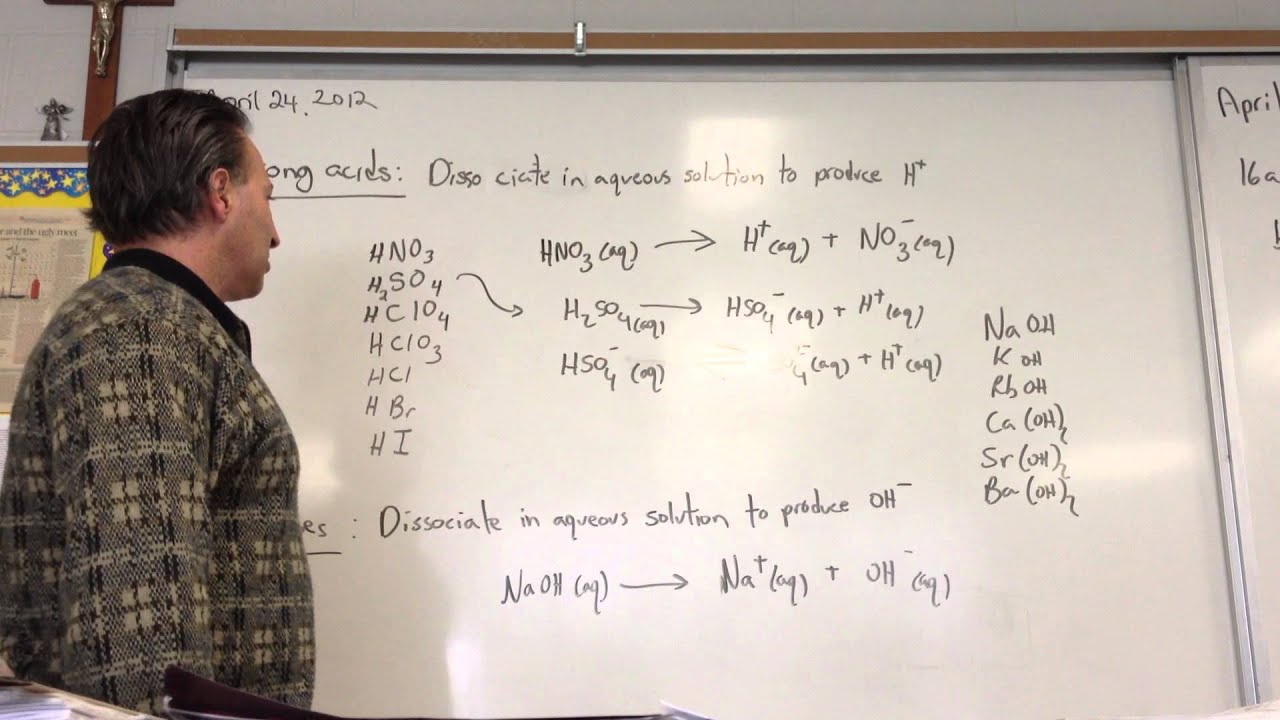 April 24. 2012
ong acids: Dissociate in aqueous solution to produce H⁺
HNO₃
H₂SO₄
HClO₄
HClO₃
HCl
HBr
HI
HNO₃(aq) → H⁺(aq) + NO₃⁻(aq)
H₂SO₄(aq) → HSO₄⁻(aq) + H⁺(aq)
HSO₄⁻(aq) ⇌ ₄⁻(aq) + H⁺(aq)
NaOH
KOH
RbOH
Ca(OH)₂
Sr(OH)₂
Ba(OH)₂
es: Dissociate in aqueous solution to produce OH⁻
NaOH(aq) → Na⁺(aq) + OH⁻(aq)
April
16a
r and the ugly meet